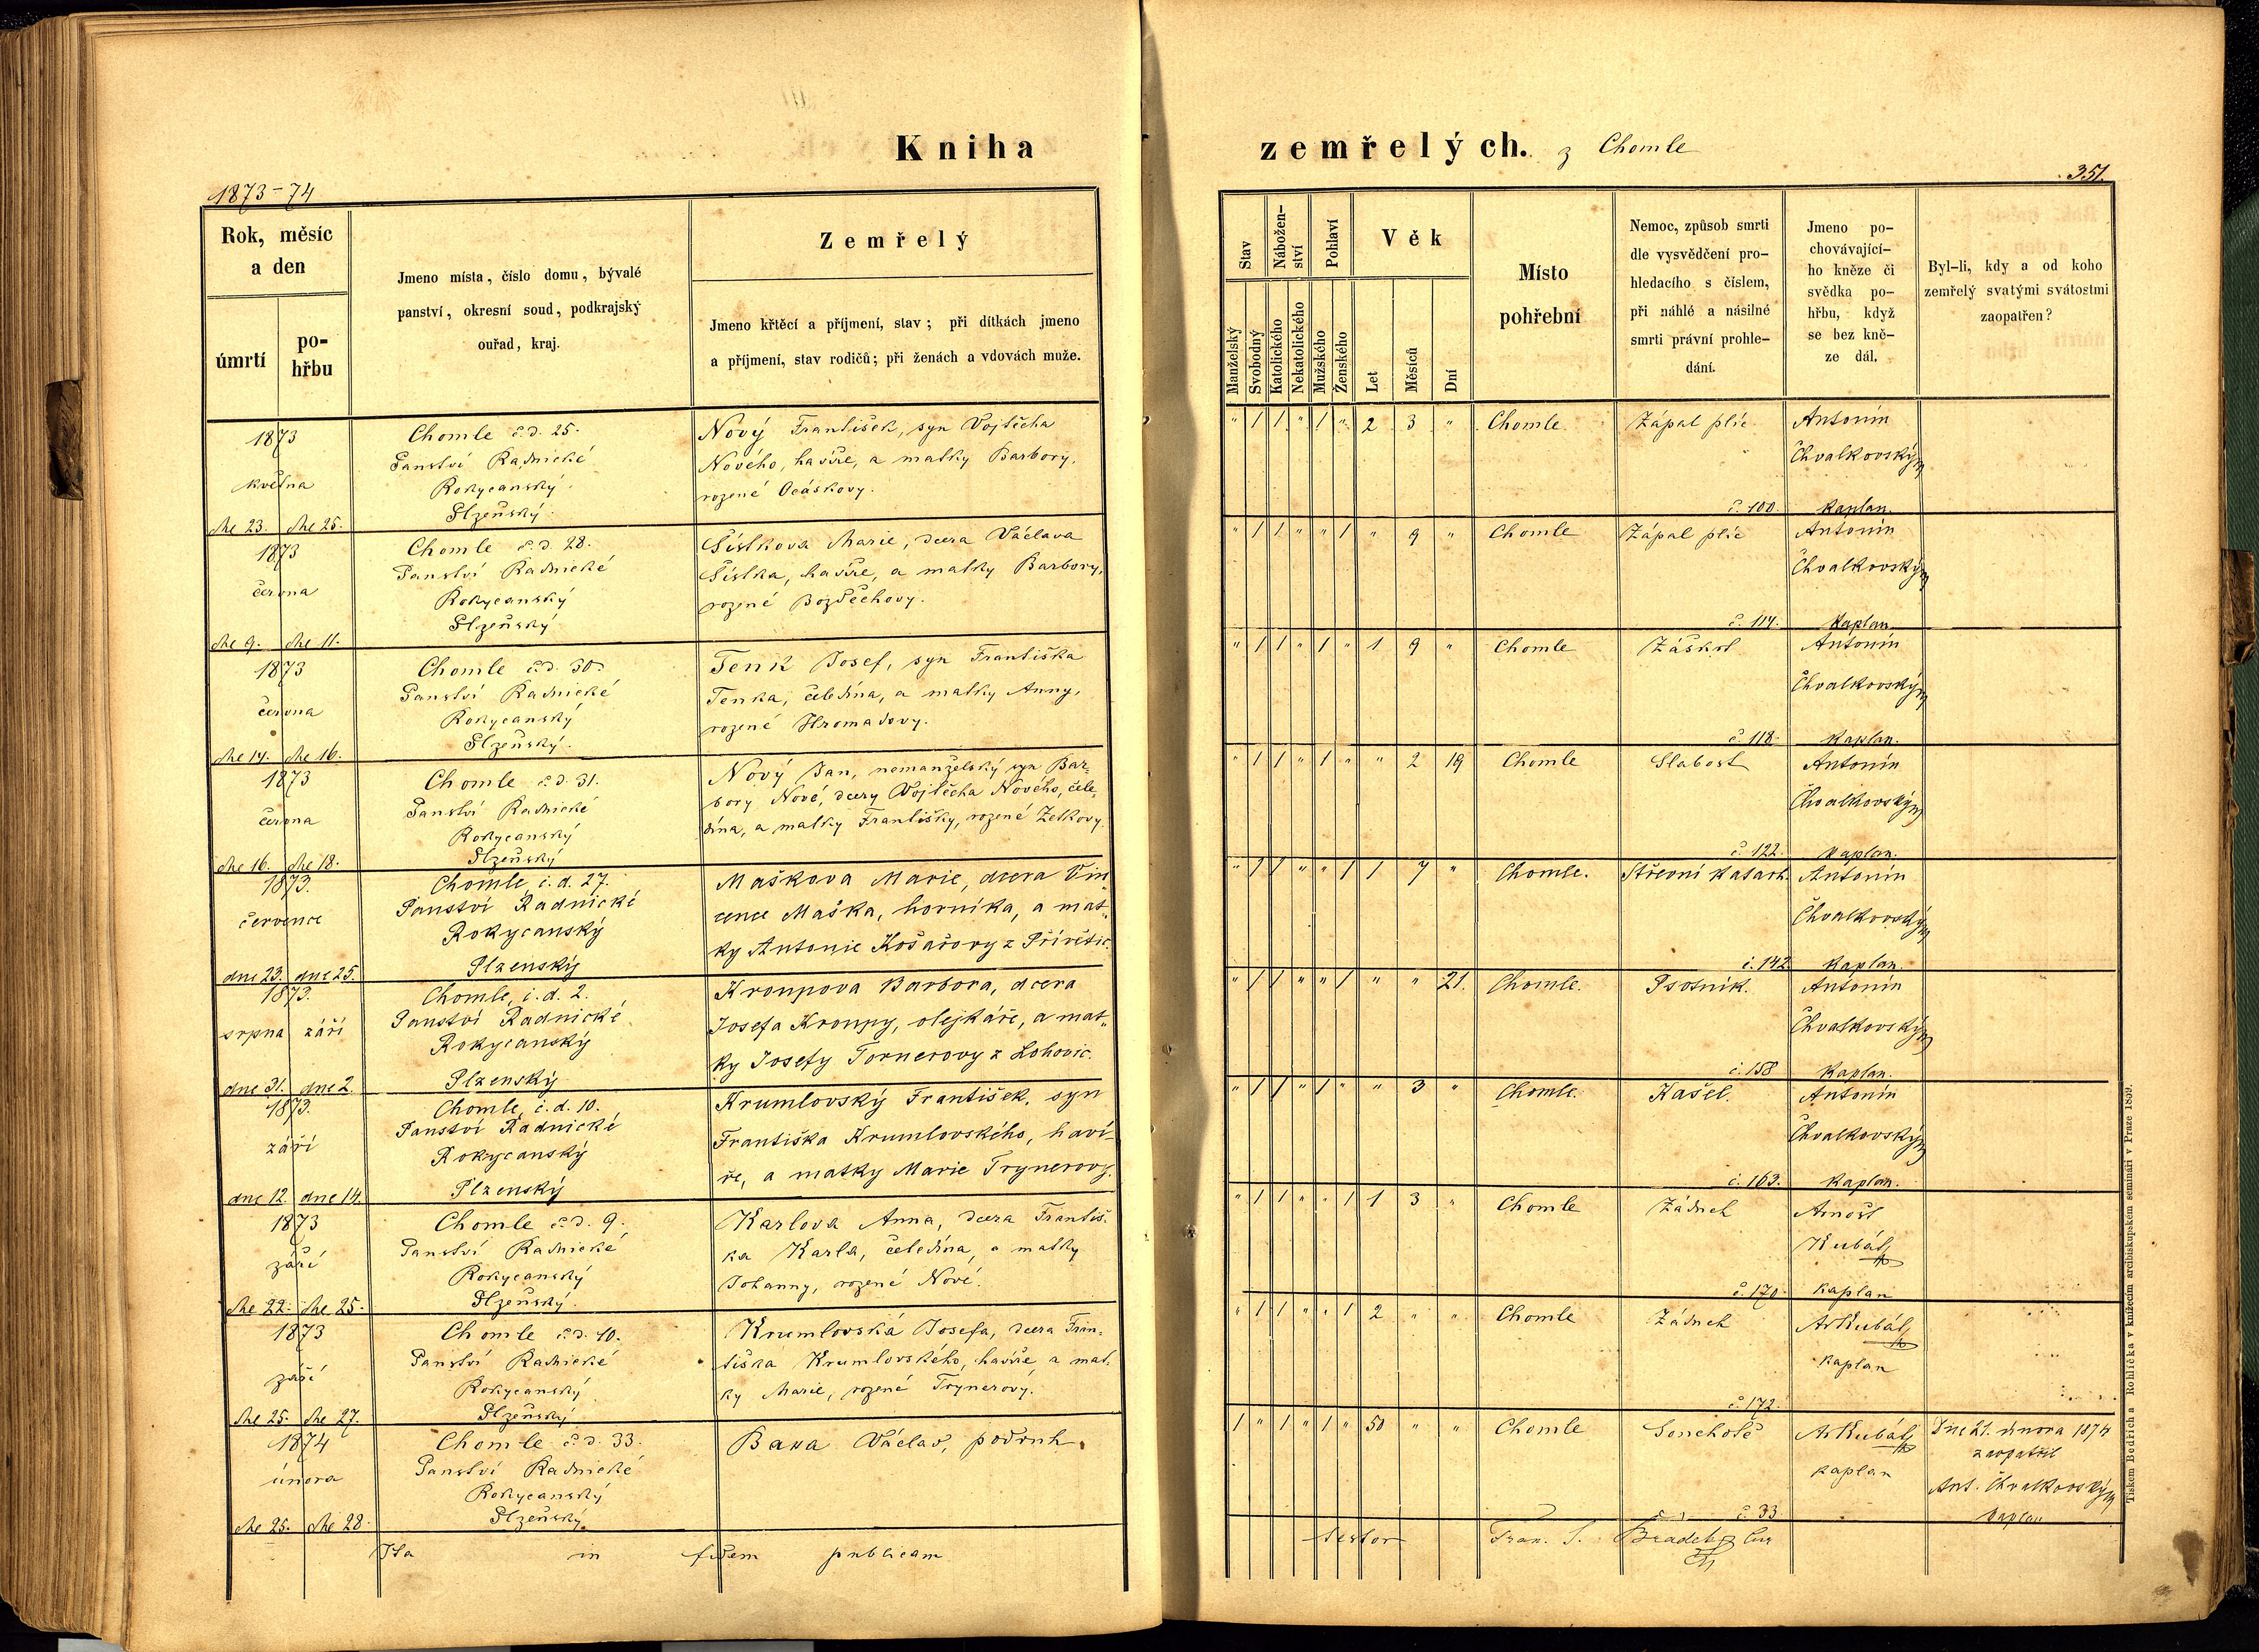 Kniha
zemřelých. z Chomle
1873–74
351.
Rok, měsíc
a den
úmrtí
po-
hřbu
Jmeno místa, číslo domu, bývalé
panství, okresní soud, podkrajský
ouřad, kraj.
Zemřelý
Jmeno křtěcí a příjmení, stav; při dítkách jmeno
a příjmení, stav rodičů; při ženách a vdovách muže.
Stav
Nábožen-
ství
Pohlaví
Věk
Manželský
Svobodný
Katolického
Nekatolického
Mužského
Ženského
Let
Měsíců
Dní
Místo
pohřební
Nemoc, způsob smrti
dle vysvědčení pro-
hledacího s číslem,
při náhlé a násilné
smrti právní prohle-
dání.
Jmeno po-
chovávající-
ho kněze či
svědka po-
hřbu, když
se bez kně-
ze dál.
Byl-li, kdy a od koho
zemřelý svatými svátostmi
zaopatřen?
1873
května
dne 23. dne 25.
Chomle č.d. 25.
Panství Radnické
Rokycanský
Plzeňský.
Nový František, syn Vojtěcha
Nového, havíře, a matky Barbory,
rozené Ocáskovy.
" 1 1 " 1 " 2 3 " Chomle Zápal plic
č. 100.
Antonín
Chvalkovský
kaplan.
1873
června
dne 9. dne 11.
Chomle č.d. 28.
Panství Radnické
Rokycanský
Plzeňský
Šístkova Marie, dcera Václava
Šístka, havíře, a matky Barbory,
rozené Bozděchovy.
" 1 1 " " 1 " 9 " Chomle Zápal plic
č. 114.
Antonín
Chvalkovský
kaplan
1873
června
dne 14. dne 16.
Chomle č.d. 30.
Panství Radnické
Rokycanský
Plzeňský.
Tenk Josef, syn Františka
Tenka, čeledína, a matky Anny,
rozené Hromadovy.
" 1 1 " 1 " 1 9 " Chomle Záškrt
č. 118.
Antonín
Chvalkovský
kaplan.
1873
června
dne 16. dne 18.
Chomle č.d. 31.
Panství Radnické
Rokycanský
Plzeňský
Nový Jan, nemanželský syn Bar-
bory Nové, dcery Vojtěcha Nového, čele-
dína, a matky Františky, rozené Zetkovy.
" 1 1 " 1 " " 2 19 Chomle Slabost
č. 122.
Antonín
Chvalkovský
kaplan.
1873.
července
dne 23. dne 25.
Chomle, č.d. 27.
Panství Radnické
Rokycanský
Plzenský
Maškova Marie, dcera Vin-
cence Maška, horníka, a mat-
ky Antonie Košařovy z Přívětic.
" 1 1 " " 1 1 7 " Chomle. Střevní katarh.
č. 142
Antonín
Chvalkovský
kaplan.
1873.
srpna září
dne 31. dne 2.
Chomle, č.d. 2.
Panství Radnické
Rokycanský
Plzenský
Kroupova Barbora, dcera
Josefa Kroupy, olejkáře, a mat-
ky Josefy Tornerovy z Lohovic.
" 1 1 " " 1 " " 21. Chomle. Psotník.
č. 158
Antonín
Chvalkovský
kaplan.
1873.
září
dne 12. dne 14.
Chomle, č.d. 10.
Panství Radnické
Rokycanský
Plzenský
Krumlovský František, syn
Františka Krumlovského, haví-
ře, a matky Marie Trynerovy.
" 1 1 " 1 " " 3 " Chomle. Kašel.
č. 163.
Antonín
Chvalkovský
kaplan.
1873
září
dne 22. dne 25.
Chomle č.d. 9.
Panství Radnické
Rokycanský
Plzeňský.
Karlova Anna, dcera Františ-
ka Karla, čeledína, a matky
Johanny, rozené Nové.
" 1 1 " " 1 1 3 " Chomle Žádneh
č. 170.
Arnošt
Kubát
kaplan
1873
září
dne 25. dne 27.
Chomle č.d. 10.
Panství Radnické
Rokycanský
Plzeňský
Krumlovská Josefa, dcera Fran-
tiška Krumlovského, havíře, a mat-
ky Marie, rozené Trynerovy.
" 1 1 " " 1 2 " " Chomle Žádneh
č. 172.
Ar Kubát
kaplan
1874
února
dne 25. dne 28.
Chomle č.d. 33.
Panství Radnické
Rokycanský
Plzeňský.
Václav, podruh.
1 " 1 " 1 " 50 " " Chomle Souchotě
č. 33
Ar Kubát
kaplan
Dne 21. února 1874
zaopatřil
Ant. Chvalkovský
kaplan
Ita in fidem publicam
testor Fran. S.
Tiskem Bedřicha Rohlíčka v knížecím arcibiskupském semináři v Praze 1859.